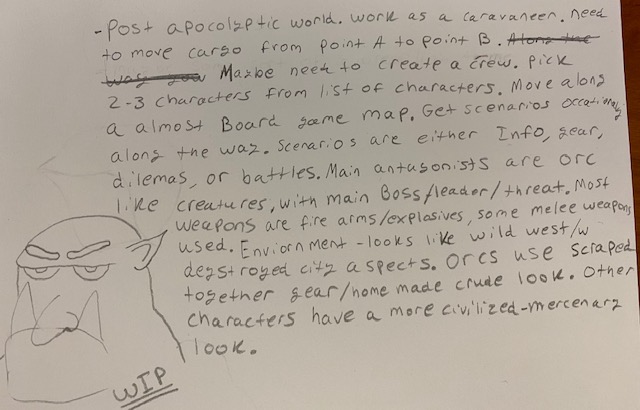 -Post apocolyptic world. work as a caravaneer. need
to move cargo from point A to point B. Along the
way you Maybe need to create a crew. Pick
2-3 characters from list of characters. Move along
a almost Board game map. Get scenarios occationaly
along the way. Scenarios are either Info, gear,
dilemas, or battles. Main antagonists are orc
like creatures, with main Boss/leader/threat. Most
weapons are fire arms/explasives, some melee weapons
used. Enviornment - looks like wild west/w
degstroyed city aspects. Orcs use scraped
together gear/home made crude look. Other
characters have a more civilized-mercenary
look.
WIP